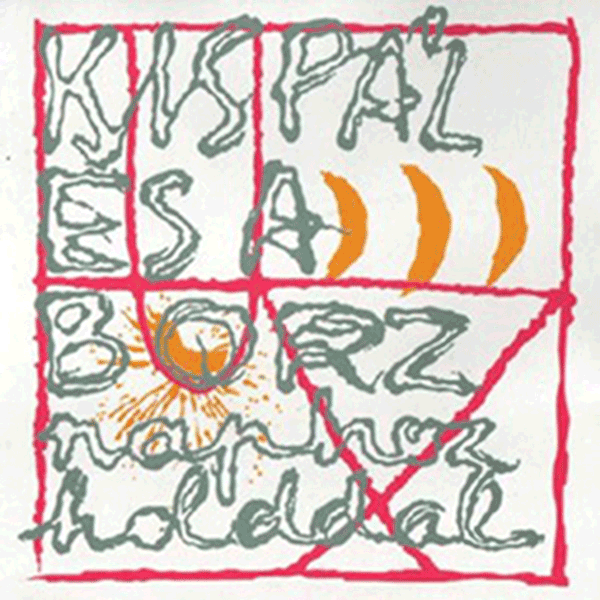 KISPÁL
ÉS A
BORZ
naphoz
holddal